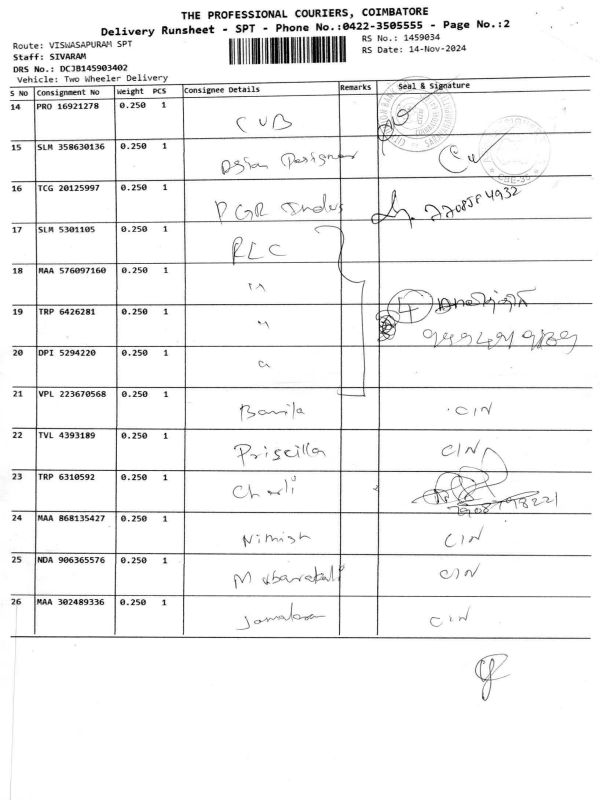 THE PROFESSIONAL COURIERS, COIMBATORE
Delivery Runsheet - SPT - Phone No.:0422-3505555 - Page No.:2
Route: VISWASAPURAM SPT
RS No.: 1459034
Staff: SIVARAM
RS Date: 14-Nov-2024
DRS No.: DCJB145903402
Vehicle: Two Wheeler Delivery
S No Consignment No Weight PCS Consignee Details Remarks Seal & Signature
14 PRO 16921278 0.250 1 CUB
15 SLM 358630136 0.250 1
16 TCG 20125997 0.250 1 PGR
17 SLM 5301105 0.250 1 RLC
18 MAA 576097160 0.250 1 "
19 TRP 6426281 0.250 1 " 4
20 DPI 5294220 0.250 1 "
21 VPL 223670568 0.250 1 CIN
22 TVL 4393189 0.250 1 Priscilla CIN
23 TRP 6310592 0.250 1 Charli
24 MAA 868135427 0.250 1 Nimish CIN
25 NDA 906365576 0.250 1 CIN
26 MAA 302489336 0.250 1 CIN